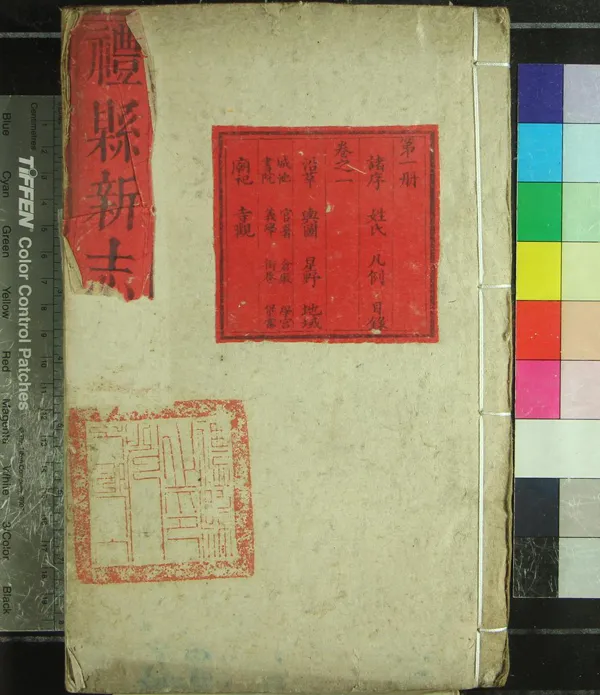 禮縣新志
第一冊
諸序 姓氏 凡例 目錄
卷之一
沿革 輿圖 星野 地域
城池 官署 倉廒 學宮
書院 義學 街巷 集寨
廟祀 寺觀
Centimetres
TIFFEN Color Control Patches
Blue Cyan Green Yellow Red Magenta White 3/Color Black